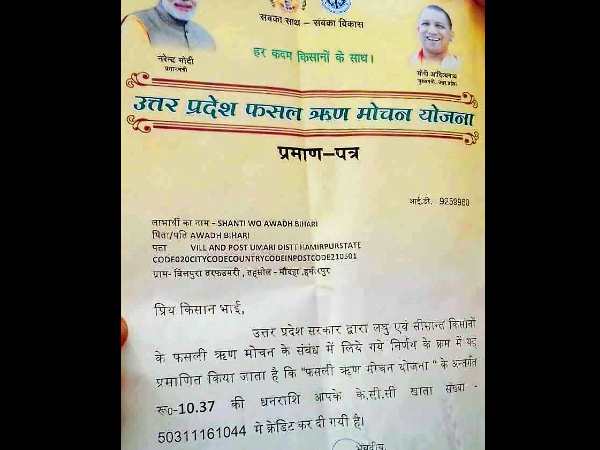 सबका साथ - सबका विकास
हर कदम किसानों के साथ।
नरेन्द्र मोदी
प्रधानमंत्री
योगी आदित्यनाथ
मुख्यमंत्री, उत्तर प्रदेश
उत्तर प्रदेश फसल ऋण मोचन योजना
प्रमाण-पत्र
आई.डी. 9259980
लाभार्थी का नाम - SHANTI WO AWADH BIHARI
पिता/पति AWADH BIHARI
पता VILL AND POST UMARI DIST HAMIRPURSTATE
CODE020CITYCODECOUNTRYCODEINPOSTCODE210501
ग्राम- तहसील - मौदहा, हमीरपुर
प्रिय किसान भाई,
उत्तर प्रदेश सरकार द्वारा लघु एवं सीमान्त किसानों
के फसली ऋण मोचन के संबंध में लिये गये निर्णय के क्रम में यह
प्रमाणित किया जाता है कि "फसली ऋण मोचन योजना " के अन्तर्गत
रू0-10.37 की धनराशि आपके के.सी.सी खाता संख्या -
50311161044 मे क्रेडिट कर दी गयी है।
भवदीय,